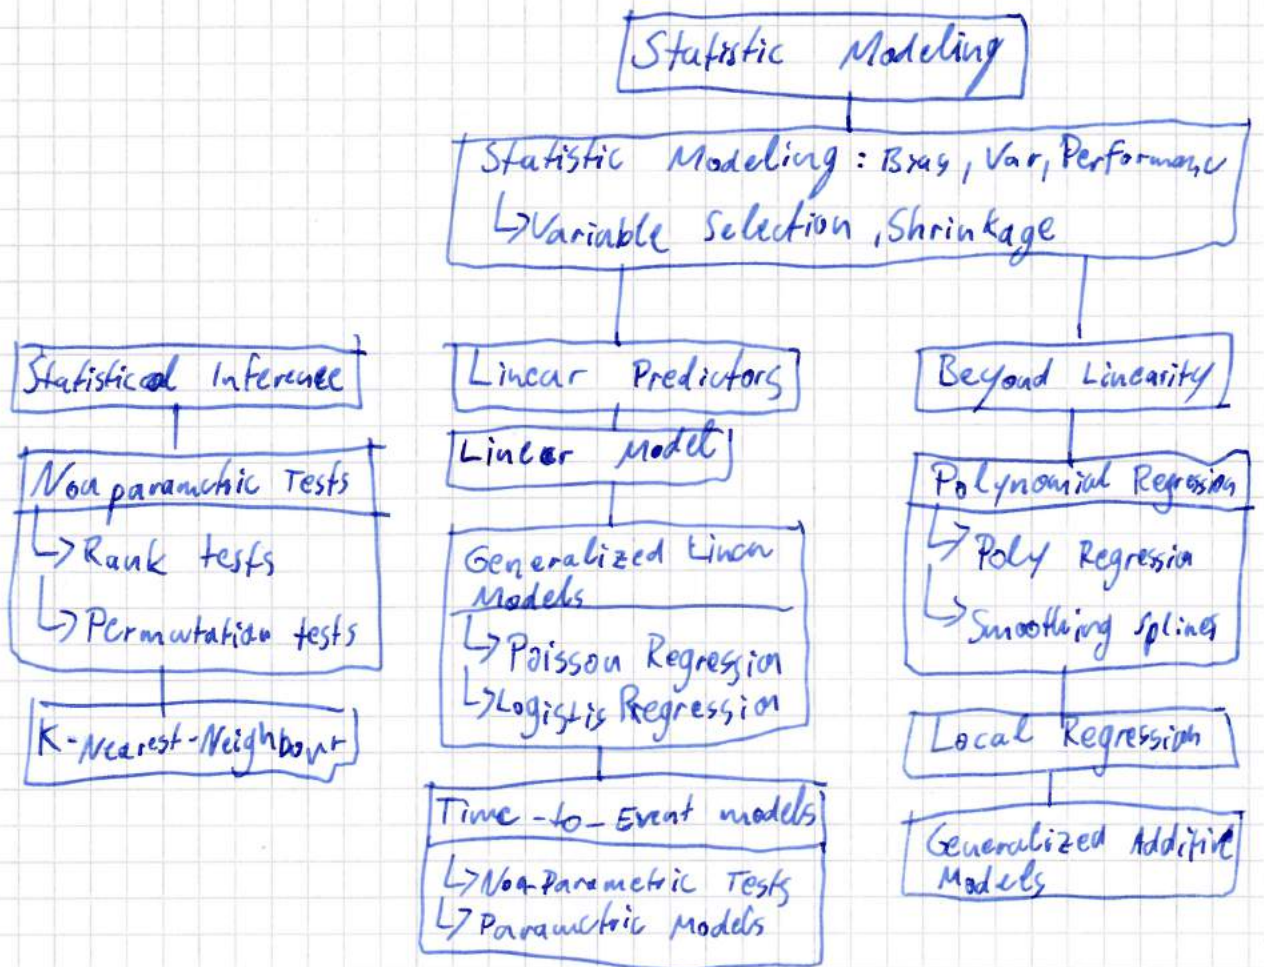 Statistic Modeling
Statistic Modeling : Bias, Var, Performanc
↳ Variable Selection, Shrinkage
Statistical Inference
Non parametric Tests
↳ Rank tests
↳ Permutation tests
K-Nearest-Neighbour
Linear Predictors
Linear Model
Generalized Linear
Models
↳ Poisson Regression
↳ Logistis Regression
Time-to-Event models
↳ Non-Parametric Tests
↳ Parametric Models
Beyond Linearity
Polynomial Regression
↳ Poly Regression
↳ Smoothing splines
Local Regression
Generalized Additive
Models